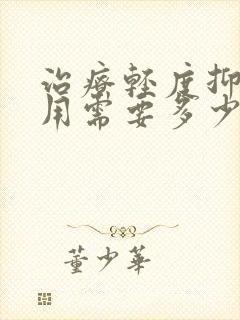 治療輕度抑
用需要多少
董少華